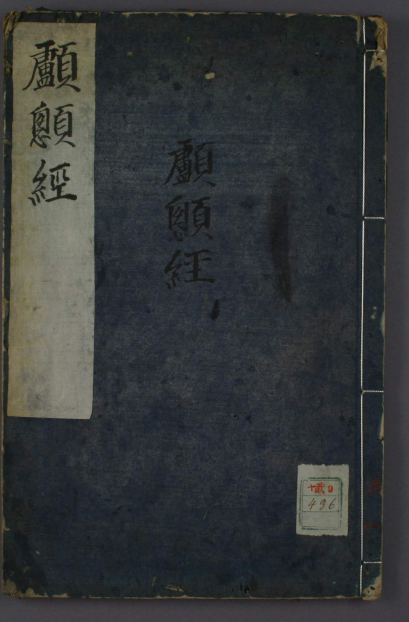 顱顖經
顱顖経
496